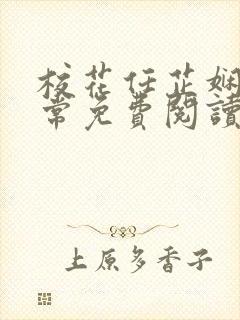 校花任芷娴
常免費閱讀
上原多香子